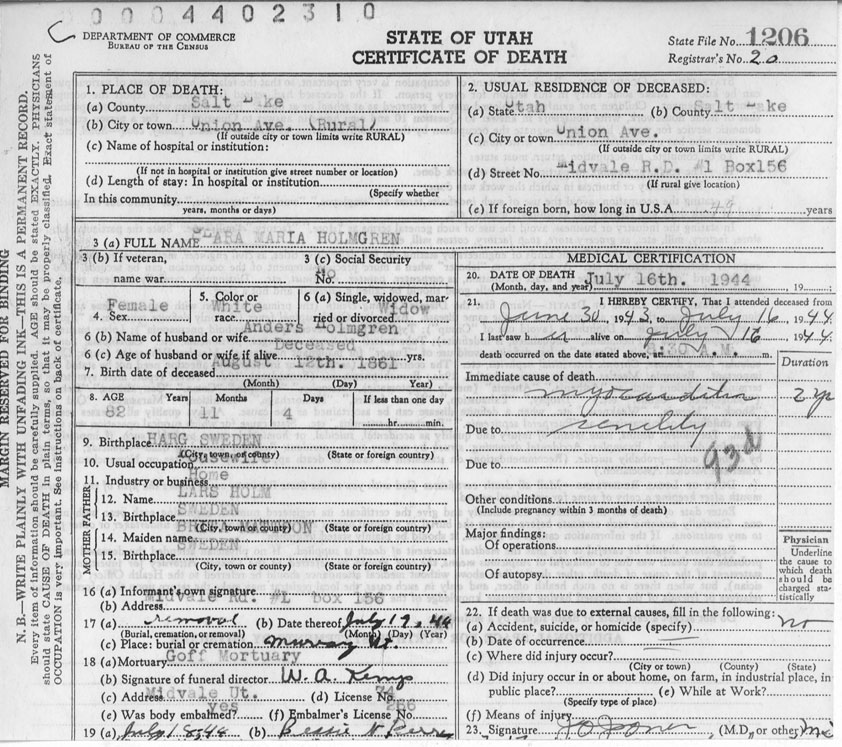 0004402310
C
DEPARTMENT OF COMMERCE
BUREAU OF THE CENSUS
STATE OF UTAH
CERTIFICATE OF DEATH
State File No. 1206
Registrar's No. 20
MARGIN RESERVED FOR BINDING
N. B.—WRITE PLAINLY WITH UNFADING INK—THIS IS A PERMANENT RECORD.
Every item of information should be carefully supplied. AGE should be stated EXACTLY. PHYSICIANS
should state CAUSE OF DEATH in plain terms, so that it may be properly classified. Exact statement of
OCCUPATION is very important. See instructions on back of certificate.
1. PLACE OF DEATH:
(a) County Salt Lake
(b) City or town Union Ave. (Rural)
(If outside city or town limits write RURAL)
(c) Name of hospital or institution:
(If not in hospital or institution give street number or location)
(d) Length of stay: In hospital or institution
(Specify whether
In this community
years, months or days)
2. USUAL RESIDENCE OF DECEASED:
(a) State Utah (b) County Salt Lake
(c) City or town Union Ave.
(If outside city or town limits write RURAL)
(d) Street No. Midvale R.D. #1 Box156
(If rural give location)
(e) If foreign born, how long in U.S.A. years
3 (a) FULL NAME MARIA HOLMGREN
3 (b) If veteran,
name war
3 (c) Social Security
No. No
4. Sex Female
5. Color or
race White
6 (a) Single, widowed, mar-
ried or divorced Widow
6 (b) Name of husband or wife Anders Holmgren
6 (c) Age of husband or wife if alive Deceased yrs.
7. Birth date of deceased August 12th. 1861
(Month) (Day) (Year)
8. AGE Years Months Days If less than one day
82 11 4 hr. min.
9. Birthplace HARG SWEDEN
(City, town, or county) (State or foreign country)
10. Usual occupation Housewife
11. Industry or business Home
FATHER
12. Name LARS HOLM
13. Birthplace SWEDEN
(City, town or county) (State or foreign country)
MOTHER
14. Maiden name
15. Birthplace SWEDEN
(City, town or county) (State or foreign country)
16 (a) Informant's own signature
(b) Address Midvale Rd. #1 box 156
17 (a) removal (b) Date thereof July 19 44
(Burial, cremation, or removal) (Month) (Day) (Year)
(c) Place: burial or cremation Murray Ut.
18 (a) Mortuary Goff Mortuary
(b) Signature of funeral director W. A. Kemp
(c) Address Midvale Ut. (d) License No. 74
(e) Was body embalmed? yes (f) Embalmer's License No. 266
19 (a) July 18, 44 (b) Bessie N.
MEDICAL CERTIFICATION
20. DATE OF DEATH
(Month, day, and year) July 16th. 1944 19
21. I HEREBY CERTIFY, That I attended deceased from
June 30, 1943 to July 16 1944
I last saw her alive on July 16, 1944
death occurred on the date stated above, at :30 A.M. m.
Duration
Immediate cause of death
myocarditis 2 yr
Due to senility
93d
Due to
Other conditions
(Include pregnancy within 3 months of death)
Major findings:
Of operations
Of autopsy
Physician
Underline
the cause to
which death
should be
charged sta-
tistically
22. If death was due to external causes, fill in the following:
(a) Accident, suicide, or homicide (specify) no
(b) Date of occurrence
(c) Where did injury occur?
(City or town) (County) (State)
(d) Did injury occur in or about home, on farm, in industrial place, in
public place? (e) While at Work?
(Specify type of place)
(f) Means of injury
23. Signature (M.D., or other)